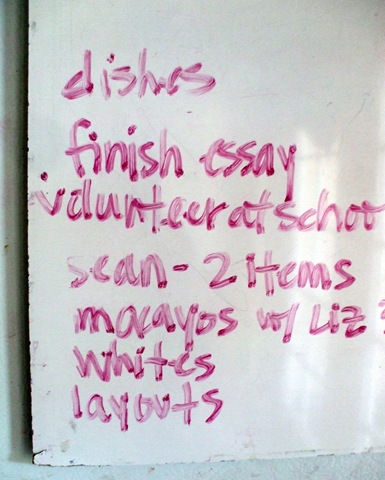 dishes
finish essay
volunteer at schoo
scan - 2 items
macayos w/ Liz ?
whites
layouts